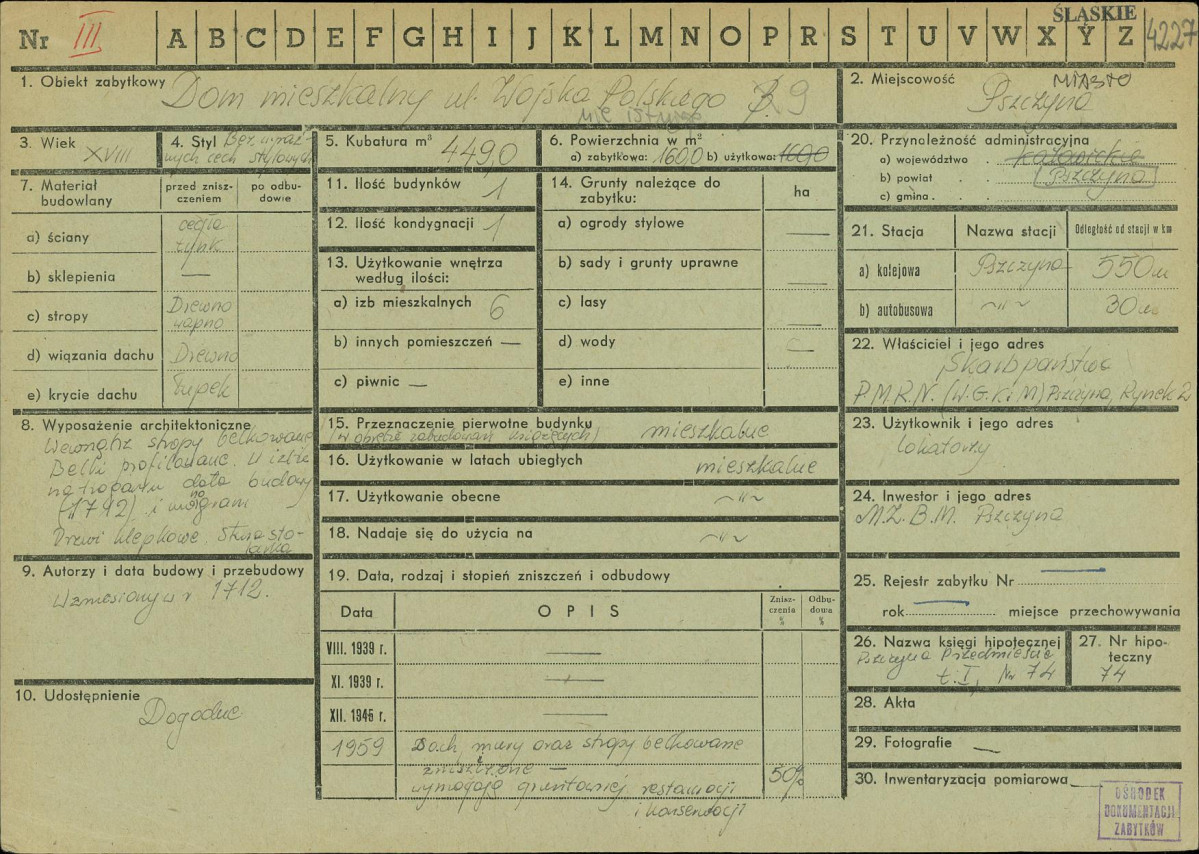 ŚLĄSKIE
Nr III A B C D E F G H I J K L M N O P R S T U V W X Y Z 4227
1. Obiekt zabytkowy Dom mieszkalny ul. Wojska Polskiego 9
nie istnieje
2. Miejscowość MIASTO
Pszczyna
3. Wiek XVIII
4. Styl Bez wyraź-
nych cech stylowych
5. Kubatura m³ 449,0
6. Powierzchnia w m²
a) zabytkowa: 160,0 b) użytkowa: 160,0
20. Przynależność administracyjna
a) województwo katowickie
b) powiat Pszczyna
c) gmina
7. Materiał budowlany
przed znisz-
czeniem
po odbu-
dowie
a) ściany cegła
tynk
b) sklepienia —
c) stropy Drewno
wapno
d) wiązania dachu Drewno
e) krycie dachu Łupek
11. Ilość budynków 1
12. Ilość kondygnacji 1
13. Użytkowanie wnętrza
według ilości:
a) izb mieszkalnych 6
b) innych pomieszczeń —
c) piwnic —
14. Grunty należące do
zabytku:
ha
a) ogrody stylowe —
b) sady i grunty uprawne —
c) lasy —
d) wody —
e) inne
21. Stacja Nazwa stacji Odległość od stacji w km
a) kolejowa Pszczyna 550 m
b) autobusowa ~"~ 30 m
22. Właściciel i jego adres
Skarb państwa
P.M.R.N. (W.G.K.i M) Pszczyna, Rynek 2
8. Wyposażenie architektoniczne
Wewnątrz stropy belkowane
Belki profilowane. W izbie
na tragarzu data budowy
(1792) i monogram
Drzwi klepkowe. Stara sto-
larka
15. Przeznaczenie pierwotne budynku mieszkalne
(w obrębie zabudowań książęcych)
16. Użytkowanie w latach ubiegłych mieszkalne
17. Użytkowanie obecne ~"~
18. Nadaje się do użycia na ~"~
23. Użytkownik i jego adres
lokatorzy
24. Inwestor i jego adres
M.Z.B.M. Pszczyna
9. Autorzy i data budowy i przebudowy
Wzniesiony w r. 1712.
19. Data, rodzaj i stopień zniszczeń i odbudowy
Data OPIS
Znisz-
czenia
%
Odbu-
dowa
%
VIII. 1939 r. —
XI. 1939 r. —
XII. 1945 r. —
1959 Dach, mury oraz stropy belkowane
zniszczone — 50%
wymagają gruntownej restauracji
i konserwacji
25. Rejestr zabytku Nr —
rok — miejsce przechowywania
26. Nazwa księgi hipotecznej
Pszczyna Przedmieście
t. I, Nr 74
27. Nr hipo-
teczny
74
10. Udostępnienie
Dogodne
28. Akta
29. Fotografie —
30. Inwentaryzacja pomiarowa
OŚRODEK
DOKUMENTACJI
ZABYTKÓW